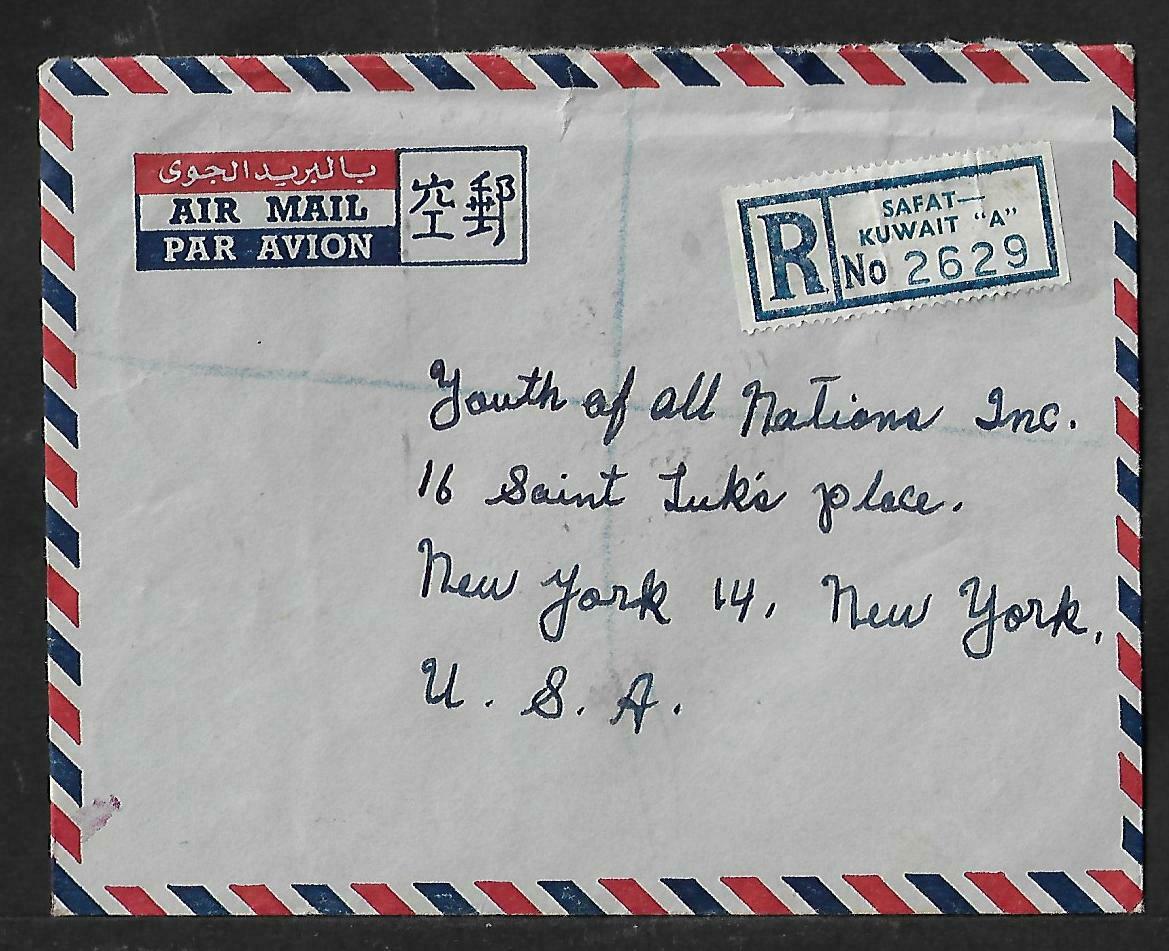 بالبريد الجوى
AIR MAIL
PAR AVION
空郵
R
SAFAT—
KUWAIT "A"
No 2629
Youth of all Nations Inc.
16 Saint Luk's place.
New York 14, New York,
U. S. A.